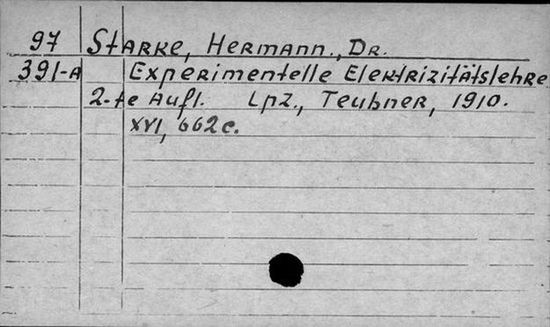 97 Starke, Hermann., Dr.
391-A Experimentelle Elektrizitätslehre
2-te Aufl. Lpz., Teubner, 1910.
XVI, 662c.